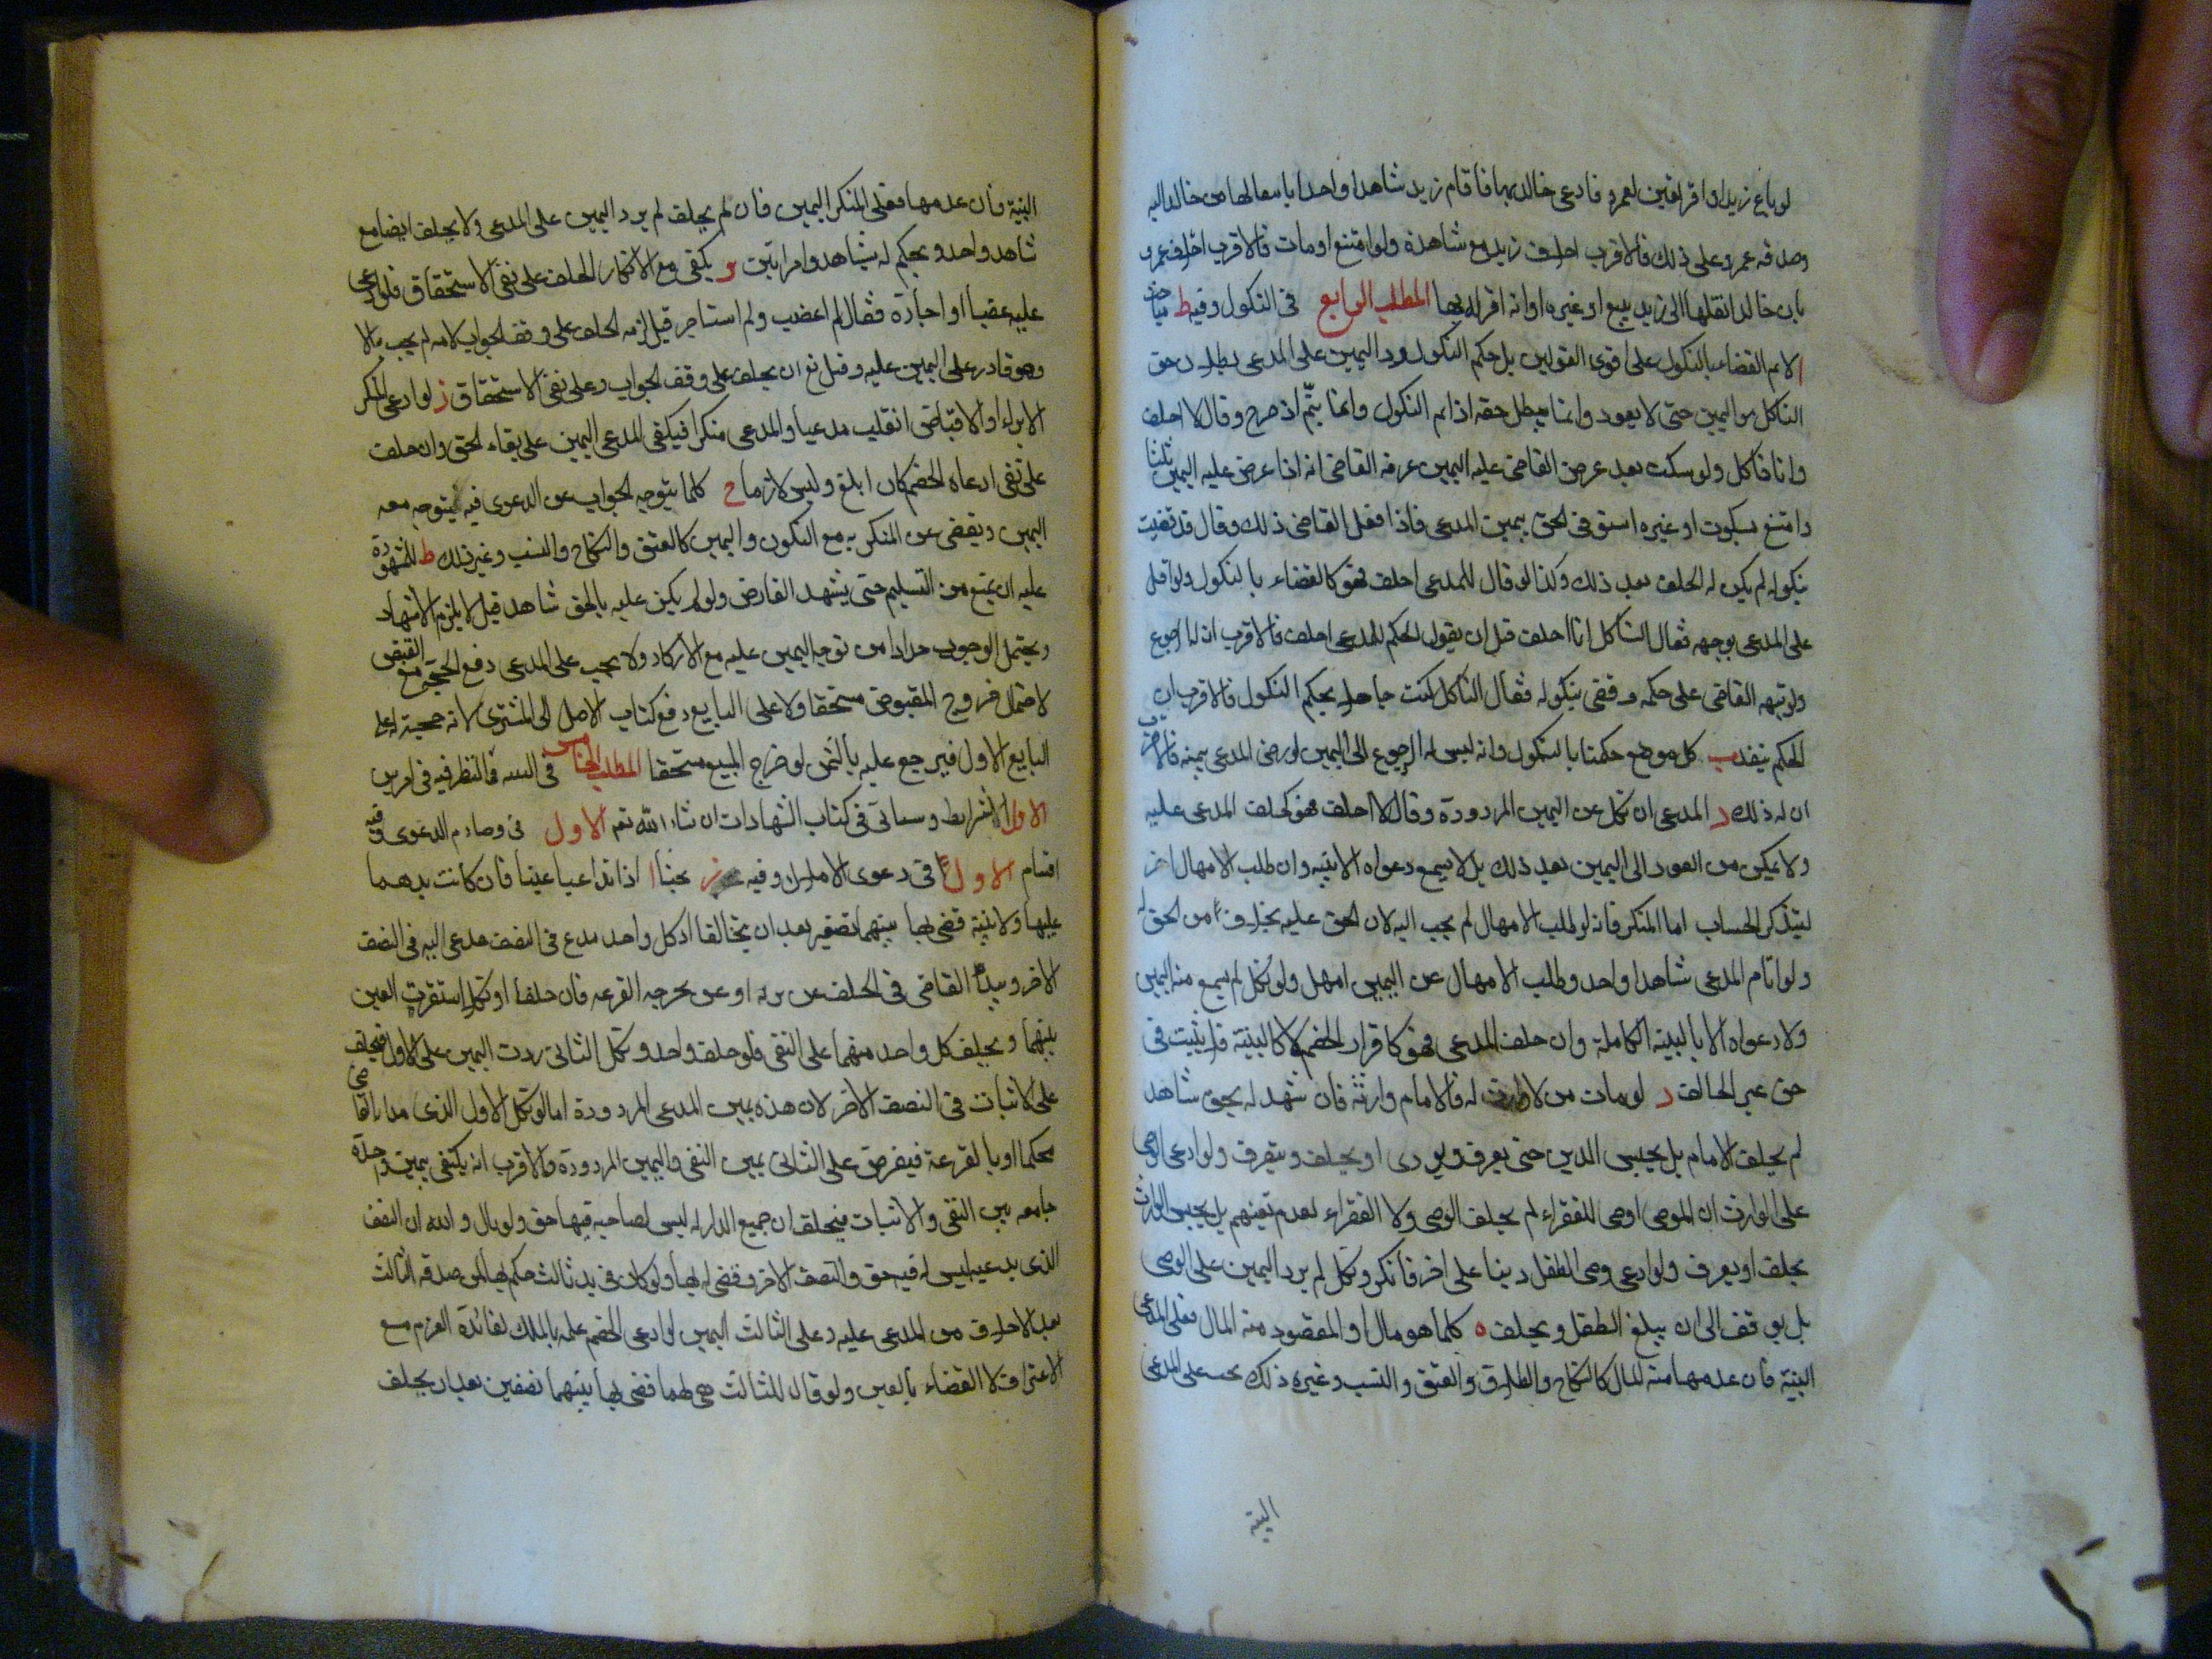 لو باع زيد او اقر لعين لعمرو فادعى خالد بها فاقام زيد شاهدا واحدا بانتقالها من خالد اليه
وصدقه عمرو على ذلك فالاقرب احلاف زيد مع شاهده ولو امتنع او مات فالاقرب احلاف عمرو
بان خالد انقلها الى زيد ببيع او غيره او انه اقر له بها المطلب الرابع في النكول وفيه ط مباحث
ا لا يتم القضاء بالنكول على اقوى القولين بل حكم النكول ورد اليمين على المدعى بطلان حق
الناكل من اليمين حتى لا يعود وانما يبطل حقه اذا تم النكول وانما يتم اذ صرح وقال لا احلف
وانا ناكل ولو سكت بعد عرض القاضى عليه اليمين عرفه القاضى انه اذا عرض عليه اليمين ثلثا
وامتنع بسكوت او غيره استوفى الحق بيمين المدعى فاذا فعل القاضى ذلك وقال قد قضيت
بنكوله لم يكن له الحلف بعد ذلك وكذا لو قال للمدعى احلف فهو كالقضاء بالنكول ولو اقبل
على المدعى بوجهه فقال الناكل انا احلف قبل ان يقول الحكم للمدعى احلف فالاقرب ان له الرجوع
ولو تبهه القاضى على حكمه وقضى بنكوله فقال الناكل كنت جاهلا بحكم النكول فالاقرب ان
الحكم ينفد ب كل موضع حكمنا بالنكول وانه ليس له الرجوع الى اليمين لو رضى المدعى بيمينه فالاقرب
ان له ذلك د المدعى ان نكل عن اليمين المردودة وقال لا احلف فهو كحلف المدعى عليه
ولا يمكن من العود الى اليمين بعد ذلك بل لا يسمع دعواه الا ببينه وان طلب الامهال اخر
ليتذكر الحساب اما المنكر فانه لو طلب الامهال لم يجب اليه لان الحق عليه بخلاف من الحق له
ولو اقام المدعى شاهدا واحد وطلب الامهال عن اليمين امهل ولو نكل لم يسمع منه اليمين
ولا دعواه الا بالبينة الكاملة وان حلف المدعى فهو كاقرار الخصم لا كالبينة فلا يثبت في
حق غير الحالف د لو مات من لا وارث له فالامام وارثه فان شهد له بحق شاهد
لم يحلف الامام بل يحبس المدين حتى يعرف ويودى او يحلف ويتفرق ولو ادعى الوصى
على الوارث ان الموصى اوصى للفقراء لم يحلف الوصى ولا الفقراء لعدم تعينهم بل يحبس الوارث
يحلف او يعرف ولو ادعى وصى الطفل دينا على اخر فانكر ونكل لم يرد اليمين على الوصى
بل يوقف الى ان يبلغ الطفل ويحلف ه كلما هو مال او المقصود منه المال فعلى المدعى
البينة فان عدمها منه للمال كالنكاح والطلاق والعتق والنسب وغيره ذلك يجب على المدعى
البينة
البينة فان عدمها فعلى المنكر اليمين فان لم يحلف لم يرد اليمين على المدعى ولا يحلف ايضا مع
شاهد واحد ويحكم له بشاهد وامراتين و يكفى مع الانكار الحلف على نفى الاستحقاق فلو ادعى
عليه غصبا او اجارة فقال لم اغصب ولم استاجر قيل لزمه الحلف على وفق الجواب لانه لم يجب به الا
وهو قادر على اليمين عليه وقيل نع ان يحلف على وفق الجواب وعلى نفى الاستحقاق ز لو ادعى المنكر
الابراء او الاقباض انقلب مدعيا والمدعى منكرا فيكفى المدعى اليمين على بقاء الحق وان حلف
على نفى ادعاه الخصم كان ابلغ وليس لازما ح كلما يتوجه الجواب عن الدعوى فيه يتوجه معه
اليمين ويقضى عن المنكر به مع النكون واليمين كالعتق والنكاح والنسب وغير ذلك ط للمشهود
عليه ان يمتنع من التسليم حتى يشهد القابض ولو لم يكن عليه بالحق شاهد قيل لا يلزم الاشهاد
ويحتمل الوجوب حذرا من توجه اليمين عليه مع الانكار ولا يجب على المدعى دفع الحجة مع القبض
لاحتمال خروج المقبوض مستحقا ولا على البايع دفع كتاب الاصل الى المشترى لانه حجة له على
البايع الاول فيرجع عليه بالثمن لو خرج المبيع مستحقا المطلب الخامس في البينه فالنظر فيه فى امرين
الاول الشرايط وسياتى فى كتاب الشهادات ان شاء الله تعم الاول فى وصادم الدعوى وفيه
اقسام الاول فى دعوى الاملاك وفيه ز بحثا ا اذا تداعيا عينا فان كانت بيدهما
عليها ولا بينة قضى بها بينهما نصفين بعد ان يتحالفا اذ كل واحد مدع فى النصف مدعى اليه فى النصف
الاخر ويبدأ القاضى فى الحلف عن يراه او عن يخرجه القرعه فان حلفا او نكلا استقرت العين
بينهما ويحلف كل واحد منهما على النفى فلو حلف واحد ونكل الثانى ردت اليمين على الاول فيحلف
على الاثبات فى النصف الاخر لان هذه يمين المدعى المردودة اما لو نكل الاول الذى بداء القاضى
بحكما او بالقرعة فيعرض على الثانى يمين النفى واليمين المردودة والاقرب انه يكتفى بيمين واحدة
جامعه بين النفى والاثبات فيحلف ان جميع الدار له ليس لصاحبه فيها حق ولو قال والله ان النصف
الذى يدعيه ليس له فيه حق والنصف الاخر وقضى له بها ولو كان فى يد ثالث حكم بها لمن صدقه الثالث
بعد الاحلاف من المدعى عليه وعلى الثالث اليمين لو ادعى الخصم علمه بالملك لفائدة الغرم مع
الاعتراف لا القضاء بالعين ولو قال للثالث هى لهما قضى بها بينهما نصفين بعد ان يحلف